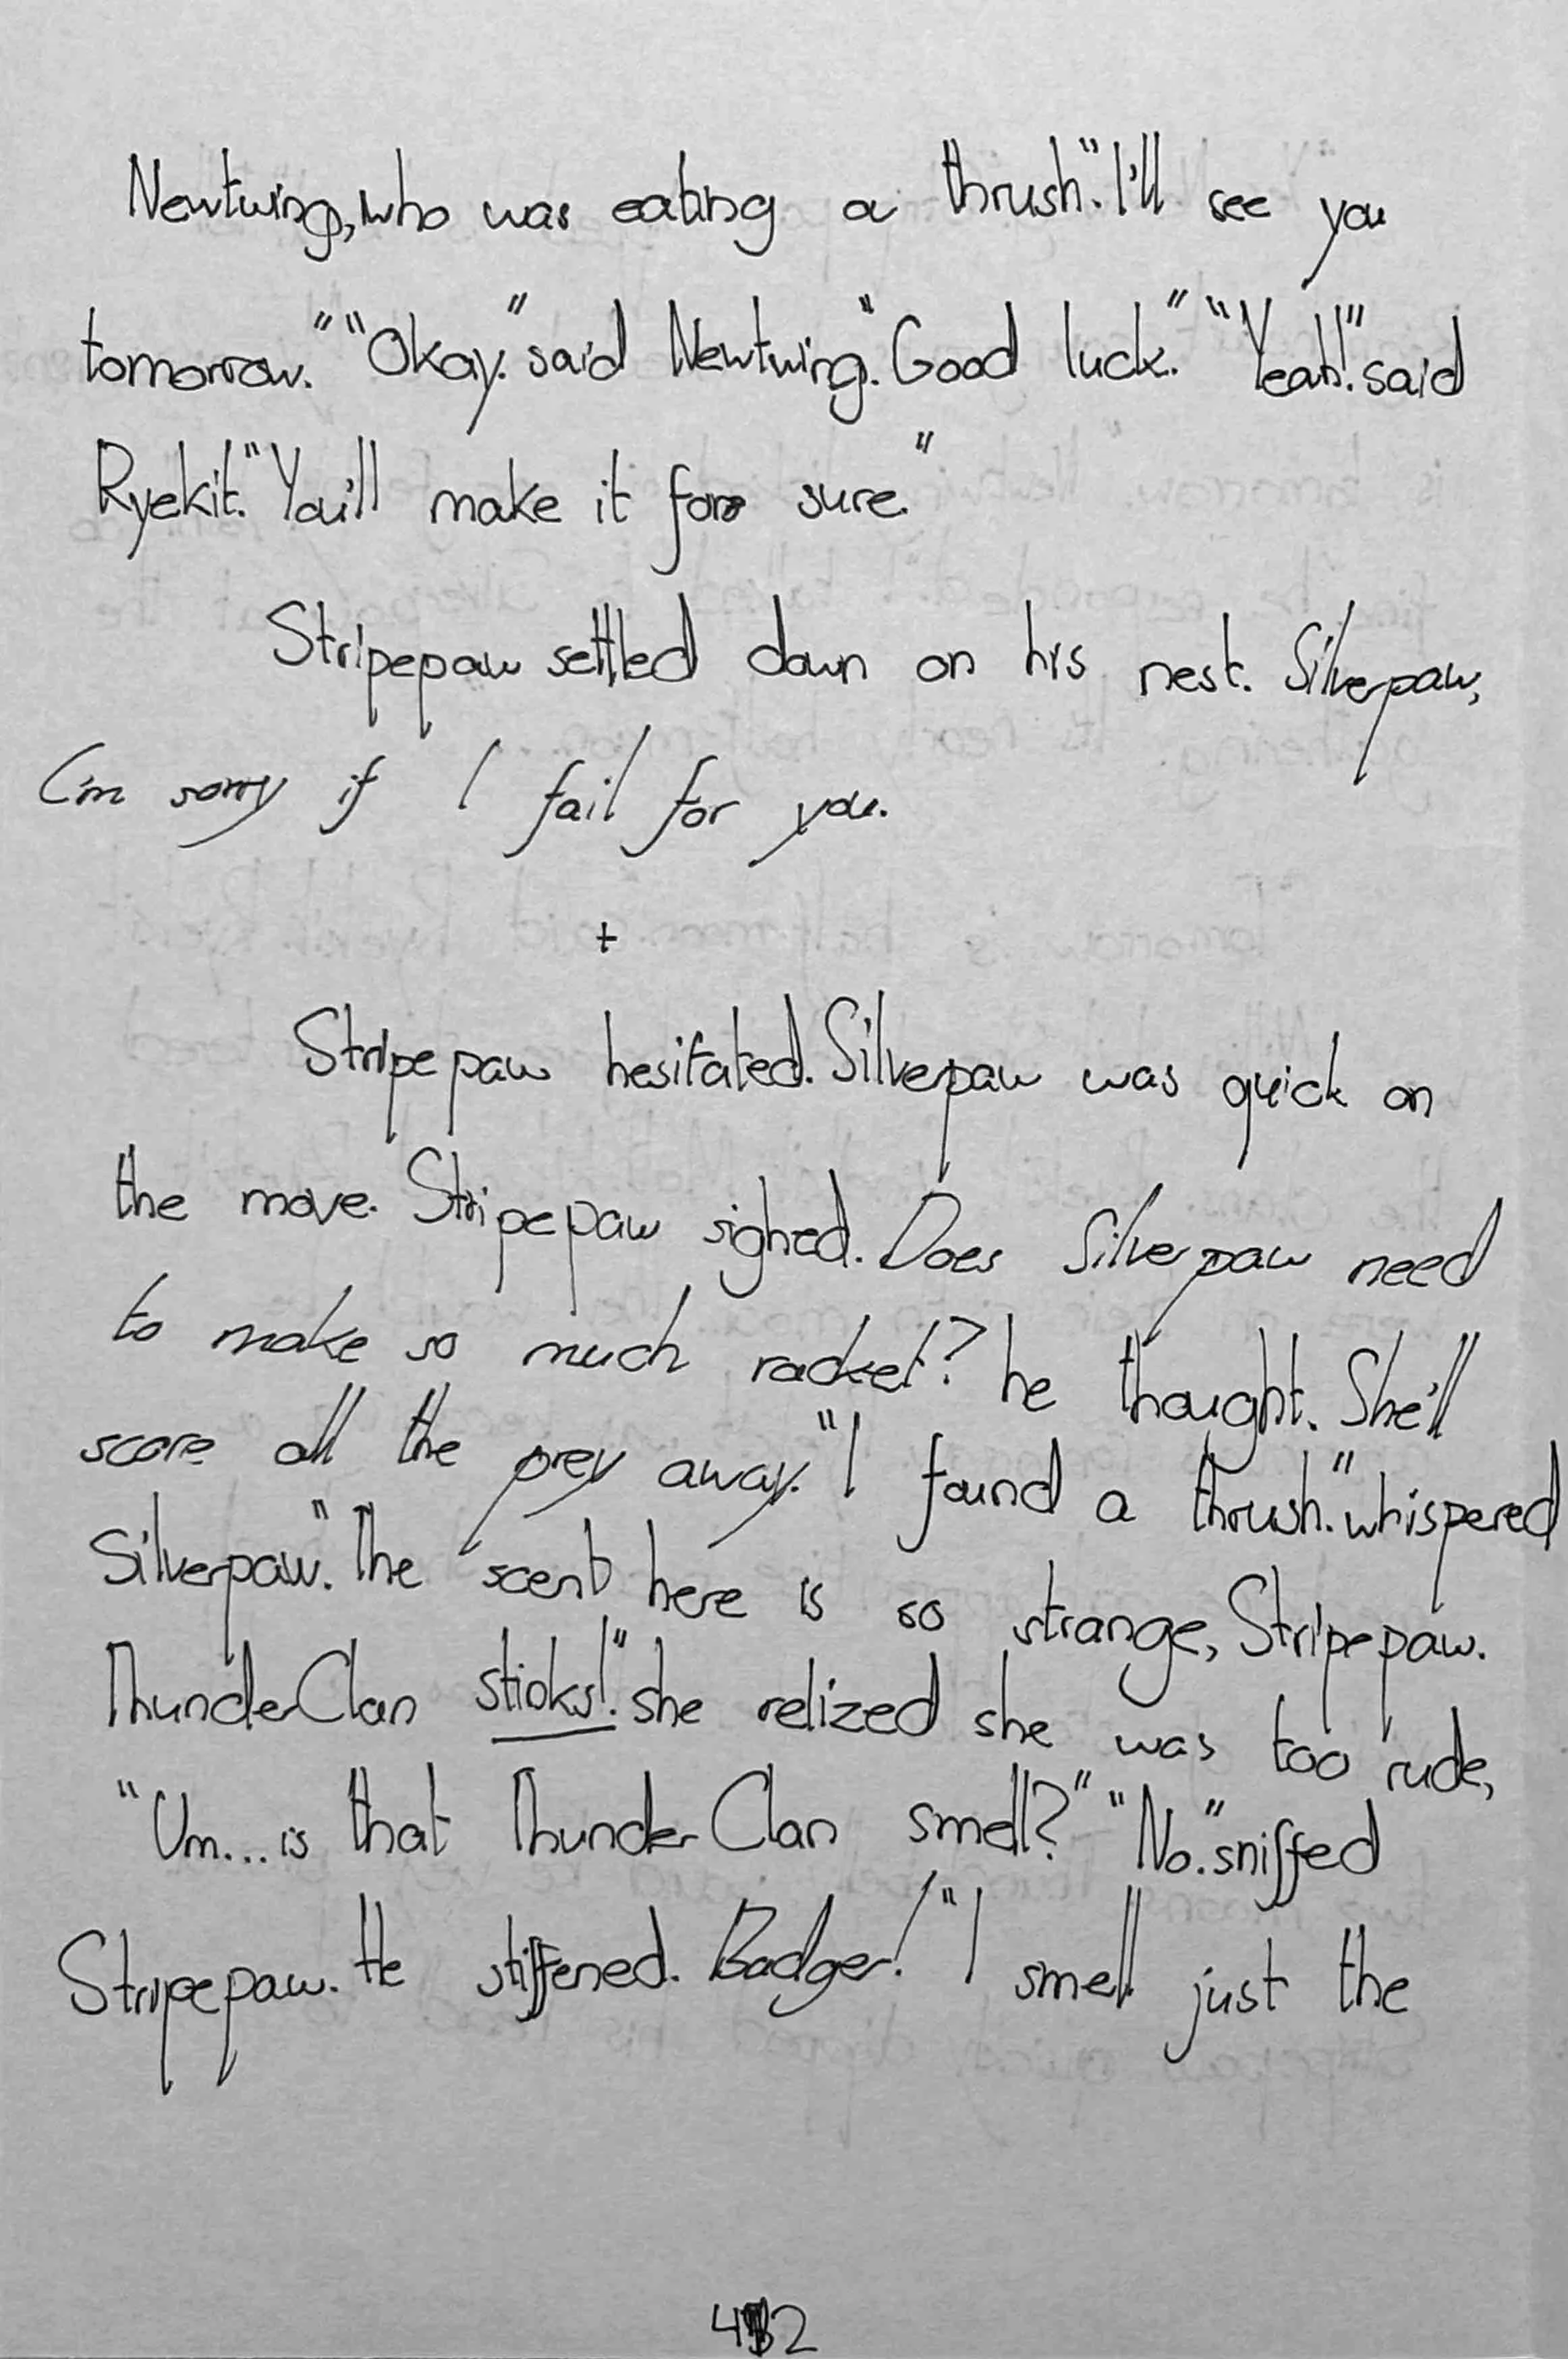 Newtwing, who was eating a thrush. "I'll see you
tomorrow." "Okay." said Newtwing. "Good luck." "Yeah!". said
Ryekit. "You'll make it for sure."
Stripepaw settled down on his nest. Silverpaw,
I'm sorry if I fail for you.
+
Stripepaw hesitated. Silverpaw was quick on
the move. Stripepaw sighed. Does Silverpaw need
to make so much racket? he thought. She'll
scare all the prey away. "I found a thrush." whispered
Silverpaw. "The scent here is so strange, Stripepaw.
ThunderClan stinks!". she relized she was too rude,
"Um... is that ThunderClan smell?" "No." sniffed
Stripepaw. He stiffened. Badger! "I smell just the
42